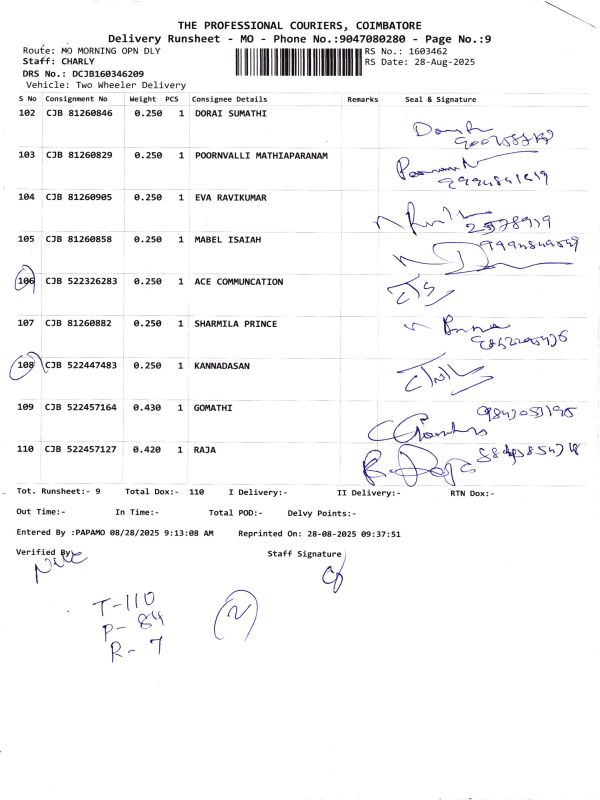 THE PROFESSIONAL COURIERS, COIMBATORE
Delivery Runsheet - MO - Phone No.:9047080280 - Page No.:9
Route: MO MORNING OPN DLY
RS No.: 1603462
Staff: CHARLY
RS Date: 28-Aug-2025
DRS No.: DCJB160346209
Vehicle: Two Wheeler Delivery
S No Consignment No Weight PCS Consignee Details Remarks Seal & Signature
102 CJB 81260846 0.250 1 DORAI SUMATHI
103 CJB 81260829 0.250 1 POORNVALLI MATHIAPARANAM
104 CJB 81260905 0.250 1 EVA RAVIKUMAR
105 CJB 81260858 0.250 1 MABEL ISAIAH
106 CJB 522326283 0.250 1 ACE COMMUNCATION
107 CJB 81260882 0.250 1 SHARMILA PRINCE
108 CJB 522447483 0.250 1 KANNADASAN
109 CJB 522457164 0.430 1 GOMATHI
110 CJB 522457127 0.420 1 RAJA
Tot. Runsheet:- 9 Total Dox:- 110 I Delivery:- II Delivery:- RTN Dox:-
Out Time:- In Time:- Total POD:- Delvy Points:-
Entered By :PAPAMO 08/28/2025 9:13:08 AM Reprinted On: 28-08-2025 09:37:51
Verified By
Staff Signature
T-110
P- 84
R- 7